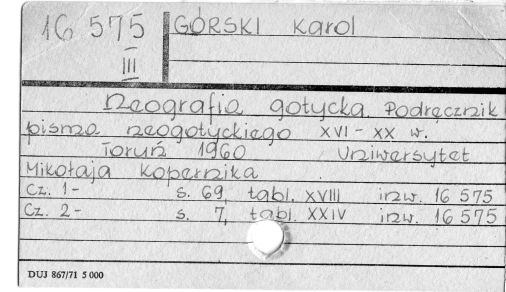 16 575
III
GÓRSKI Karol
Neografia gotycka. Podręcznik
pisma neogotyckiego XVI - XX w.
Toruń 1960 Uniwersytet
Mikołaja Kopernika
Cz. 1 - s. 69, tabl. XVIII inw. 16 575
Cz. 2 - s. 7, tabl. XXIV inw. 16 575
DUJ 867/71 5 000